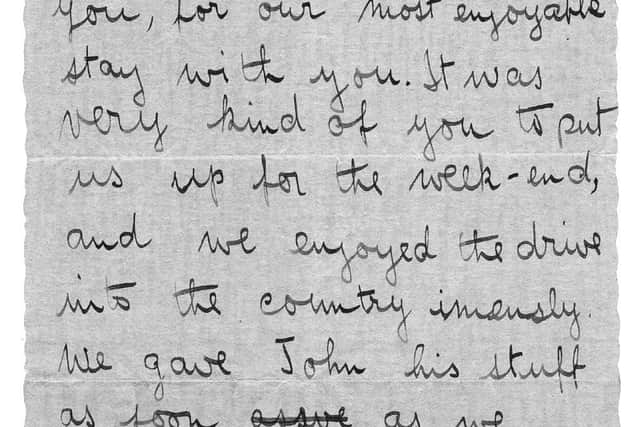 you, for our most enjoyable
stay with you. It was
very kind of you to put
us up for the week-end,
and we enjoyed the drive
into the country imensly.
We gave John his stuff
as soon as we